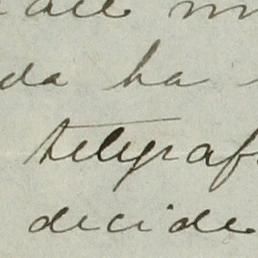 da ha
telegraf
decide